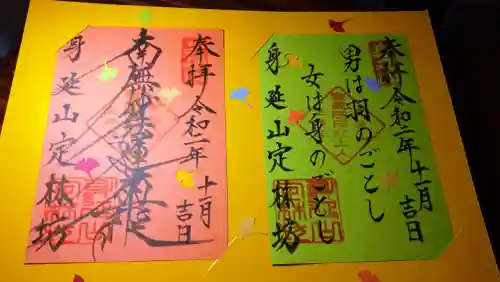 奉拝 令和二年 十一月 吉日
男は羽のごとし
女は身のごとし
身延山定林坊
奉拝 令和二年 十一月 吉日
南無妙法蓮華経
身延山定林坊